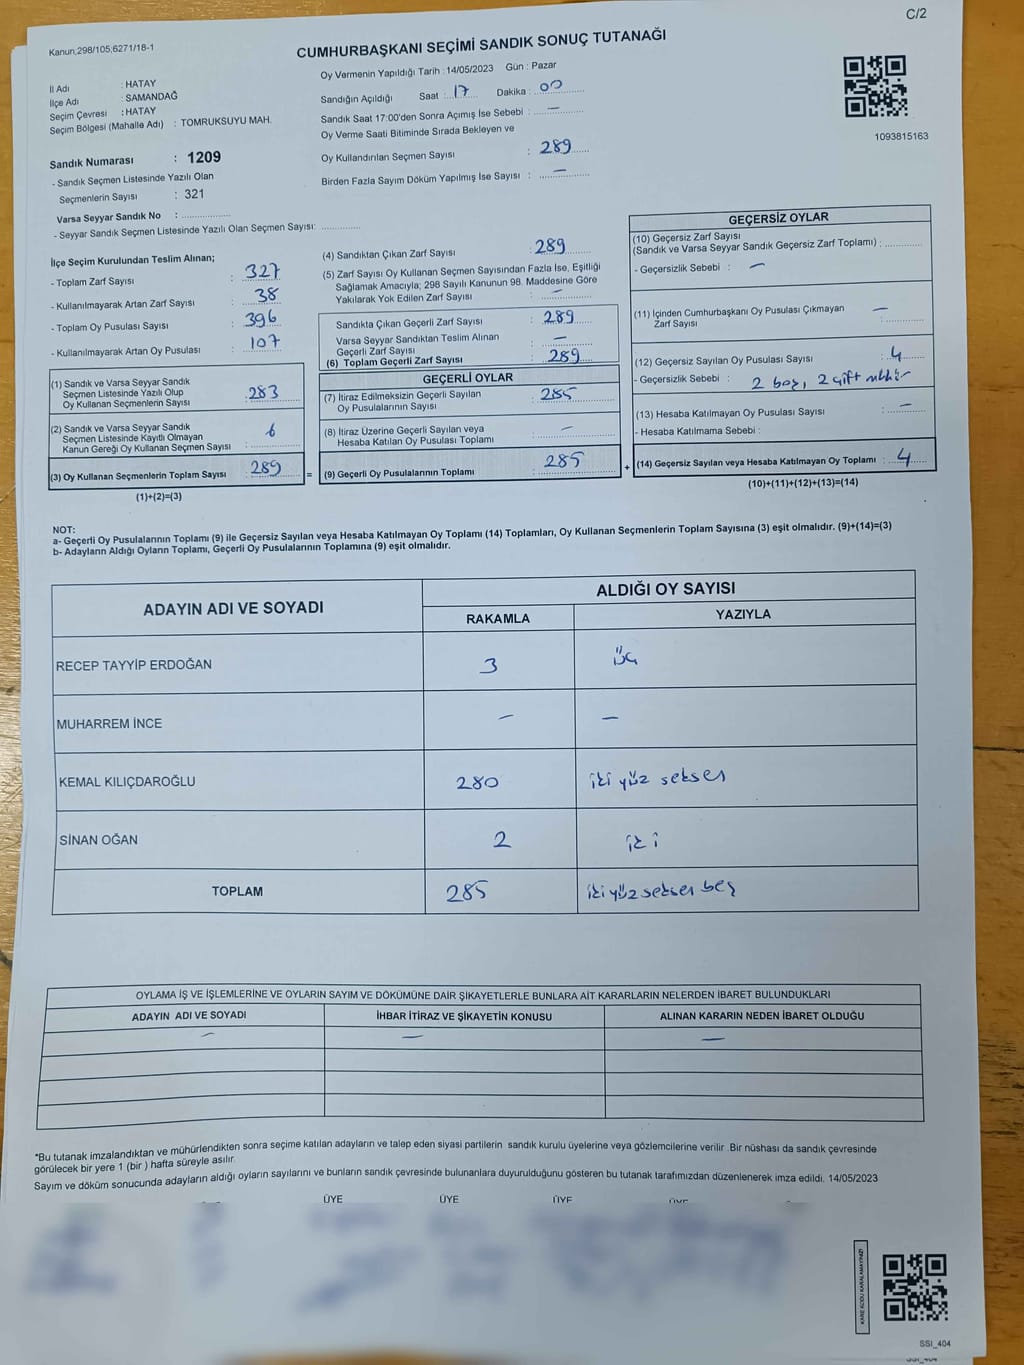 C/2
Kanun,298/105;6271/18-1
CUMHURBAŞKANI SEÇİMİ SANDIK SONUÇ TUTANAĞI
İl Adı : HATAY
İlçe Adı : SAMANDAĞ
Seçim Çevresi : HATAY
Seçim Bölgesi (Mahalle Adı) : TOMRUKSUYU MAH.
Oy Vermenin Yapıldığı Tarih : 14/05/2023 Gün : Pazar
Sandığın Açıldığı Saat : 17 Dakika : 00
Sandık Saat 17:00'den Sonra Açımış İse Sebebi : —
Oy Verme Saati Bitiminde Sırada Bekleyen ve
Oy Kullandırılan Seçmen Sayısı : 289
Birden Fazla Sayım Döküm Yapılmış İse Sayısı : —
1093815163
Sandık Numarası : 1209
- Sandık Seçmen Listesinde Yazılı Olan
Seçmenlerin Sayısı : 321
Varsa Seyyar Sandık No :
- Seyyar Sandık Seçmen Listesinde Yazılı Olan Seçmen Sayısı:
İlçe Seçim Kurulundan Teslim Alınan;
- Toplam Zarf Sayısı : 327
- Kullanılmayarak Artan Zarf Sayısı : 38
- Toplam Oy Pusulası Sayısı : 396
- Kullanılmayarak Artan Oy Pusulası : 107
(1) Sandık ve Varsa Seyyar Sandık
Seçmen Listesinde Yazılı Olup
Oy Kullanan Seçmenlerin Sayısı : 283
(2) Sandık ve Varsa Seyyar Sandık
Seçmen Listesinde Kayıtlı Olmayan
Kanun Gereği Oy Kullanan Seçmen Sayısı : 6
(3) Oy Kullanan Seçmenlerin Toplam Sayısı : 289 =
(1)+(2)=(3)
(4) Sandıktan Çıkan Zarf Sayısı : 289
(5) Zarf Sayısı Oy Kullanan Seçmen Sayısından Fazla İse, Eşitliği
Sağlamak Amacıyla; 298 Sayılı Kanunun 98. Maddesine Göre
Yakılarak Yok Edilen Zarf Sayısı : —
Sandıkta Çıkan Geçerli Zarf Sayısı : 289
Varsa Seyyar Sandıktan Teslim Alınan
Geçerli Zarf Sayısı : —
(6) Toplam Geçerli Zarf Sayısı : 289
GEÇERLİ OYLAR
(7) İtiraz Edilmeksizin Geçerli Sayılan
Oy Pusulalarının Sayısı : 285
(8) İtiraz Üzerine Geçerli Sayılan veya
Hesaba Katılan Oy Pusulası Toplamı : —
(9) Geçerli Oy Pusulalarının Toplamı : 285 +
GEÇERSİZ OYLAR
(10) Geçersiz Zarf Sayısı
(Sandık ve Varsa Seyyar Sandık Geçersiz Zarf Toplamı) :
- Geçersizlik Sebebi : —
(11) İçinden Cumhurbaşkanı Oy Pusulası Çıkmayan
Zarf Sayısı : —
(12) Geçersiz Sayılan Oy Pusulası Sayısı : 4
- Geçersizlik Sebebi : 2 boş, 2 çift mühür
(13) Hesaba Katılmayan Oy Pusulası Sayısı : —
- Hesaba Katılmama Sebebi :
(14) Geçersiz Sayılan veya Hesaba Katılmayan Oy Toplamı : 4
(10)+(11)+(12)+(13)=(14)
NOT:
a- Geçerli Oy Pusulalarının Toplamı (9) ile Geçersiz Sayılan veya Hesaba Katılmayan Oy Toplamı (14) Toplamları, Oy Kullanan Seçmenlerin Toplam Sayısına (3) eşit olmalıdır. (9)+(14)=(3)
b- Adayların Aldığı Oyların Toplamı, Geçerli Oy Pusulalarının Toplamına (9) eşit olmalıdır.
ADAYIN ADI VE SOYADI
ALDIĞI OY SAYISI
RAKAMLA YAZIYLA
RECEP TAYYİP ERDOĞAN 3 üç
MUHARREM İNCE — —
KEMAL KILIÇDAROĞLU 280 iki yüz seksen
SİNAN OĞAN 2 iki
TOPLAM 285 iki yüz seksen beş
OYLAMA İŞ VE İŞLEMLERİNE VE OYLARIN SAYIM VE DÖKÜMÜNE DAİR ŞİKAYETLERLE BUNLARA AİT KARARLARIN NELERDEN İBARET BULUNDUKLARI
ADAYIN ADI VE SOYADI İHBAR İTİRAZ VE ŞİKAYETİN KONUSU ALINAN KARARIN NEDEN İBARET OLDUĞU
— — —
*Bu tutanak imzalandıktan ve mühürlendikten sonra seçime katılan adayların ve talep eden siyasi partilerin sandık kurulu üyelerine veya gözlemcilerine verilir .Bir nüshası da sandık çevresinde
görülecek bir yere 1 (bir ) hafta süreyle asılır.
Sayım ve döküm sonucunda adayların aldığı oyların sayılarını ve bunların sandık çevresinde bulunanlara duyurulduğunu gösteren bu tutanak tarafımızdan düzenlenerek imza edildi. 14/05/2023
ÜYE ÜYE ÜYE ÜYE
KARE KODU KARALAMAYINIZ!
SSI_404